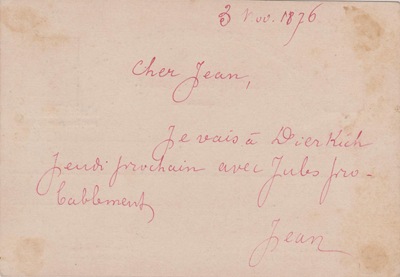 3 Nov. 1876
Cher Jean,
Je vais à Dierkich
Jeudi prochain avec Jules pro-
bablement
Jean